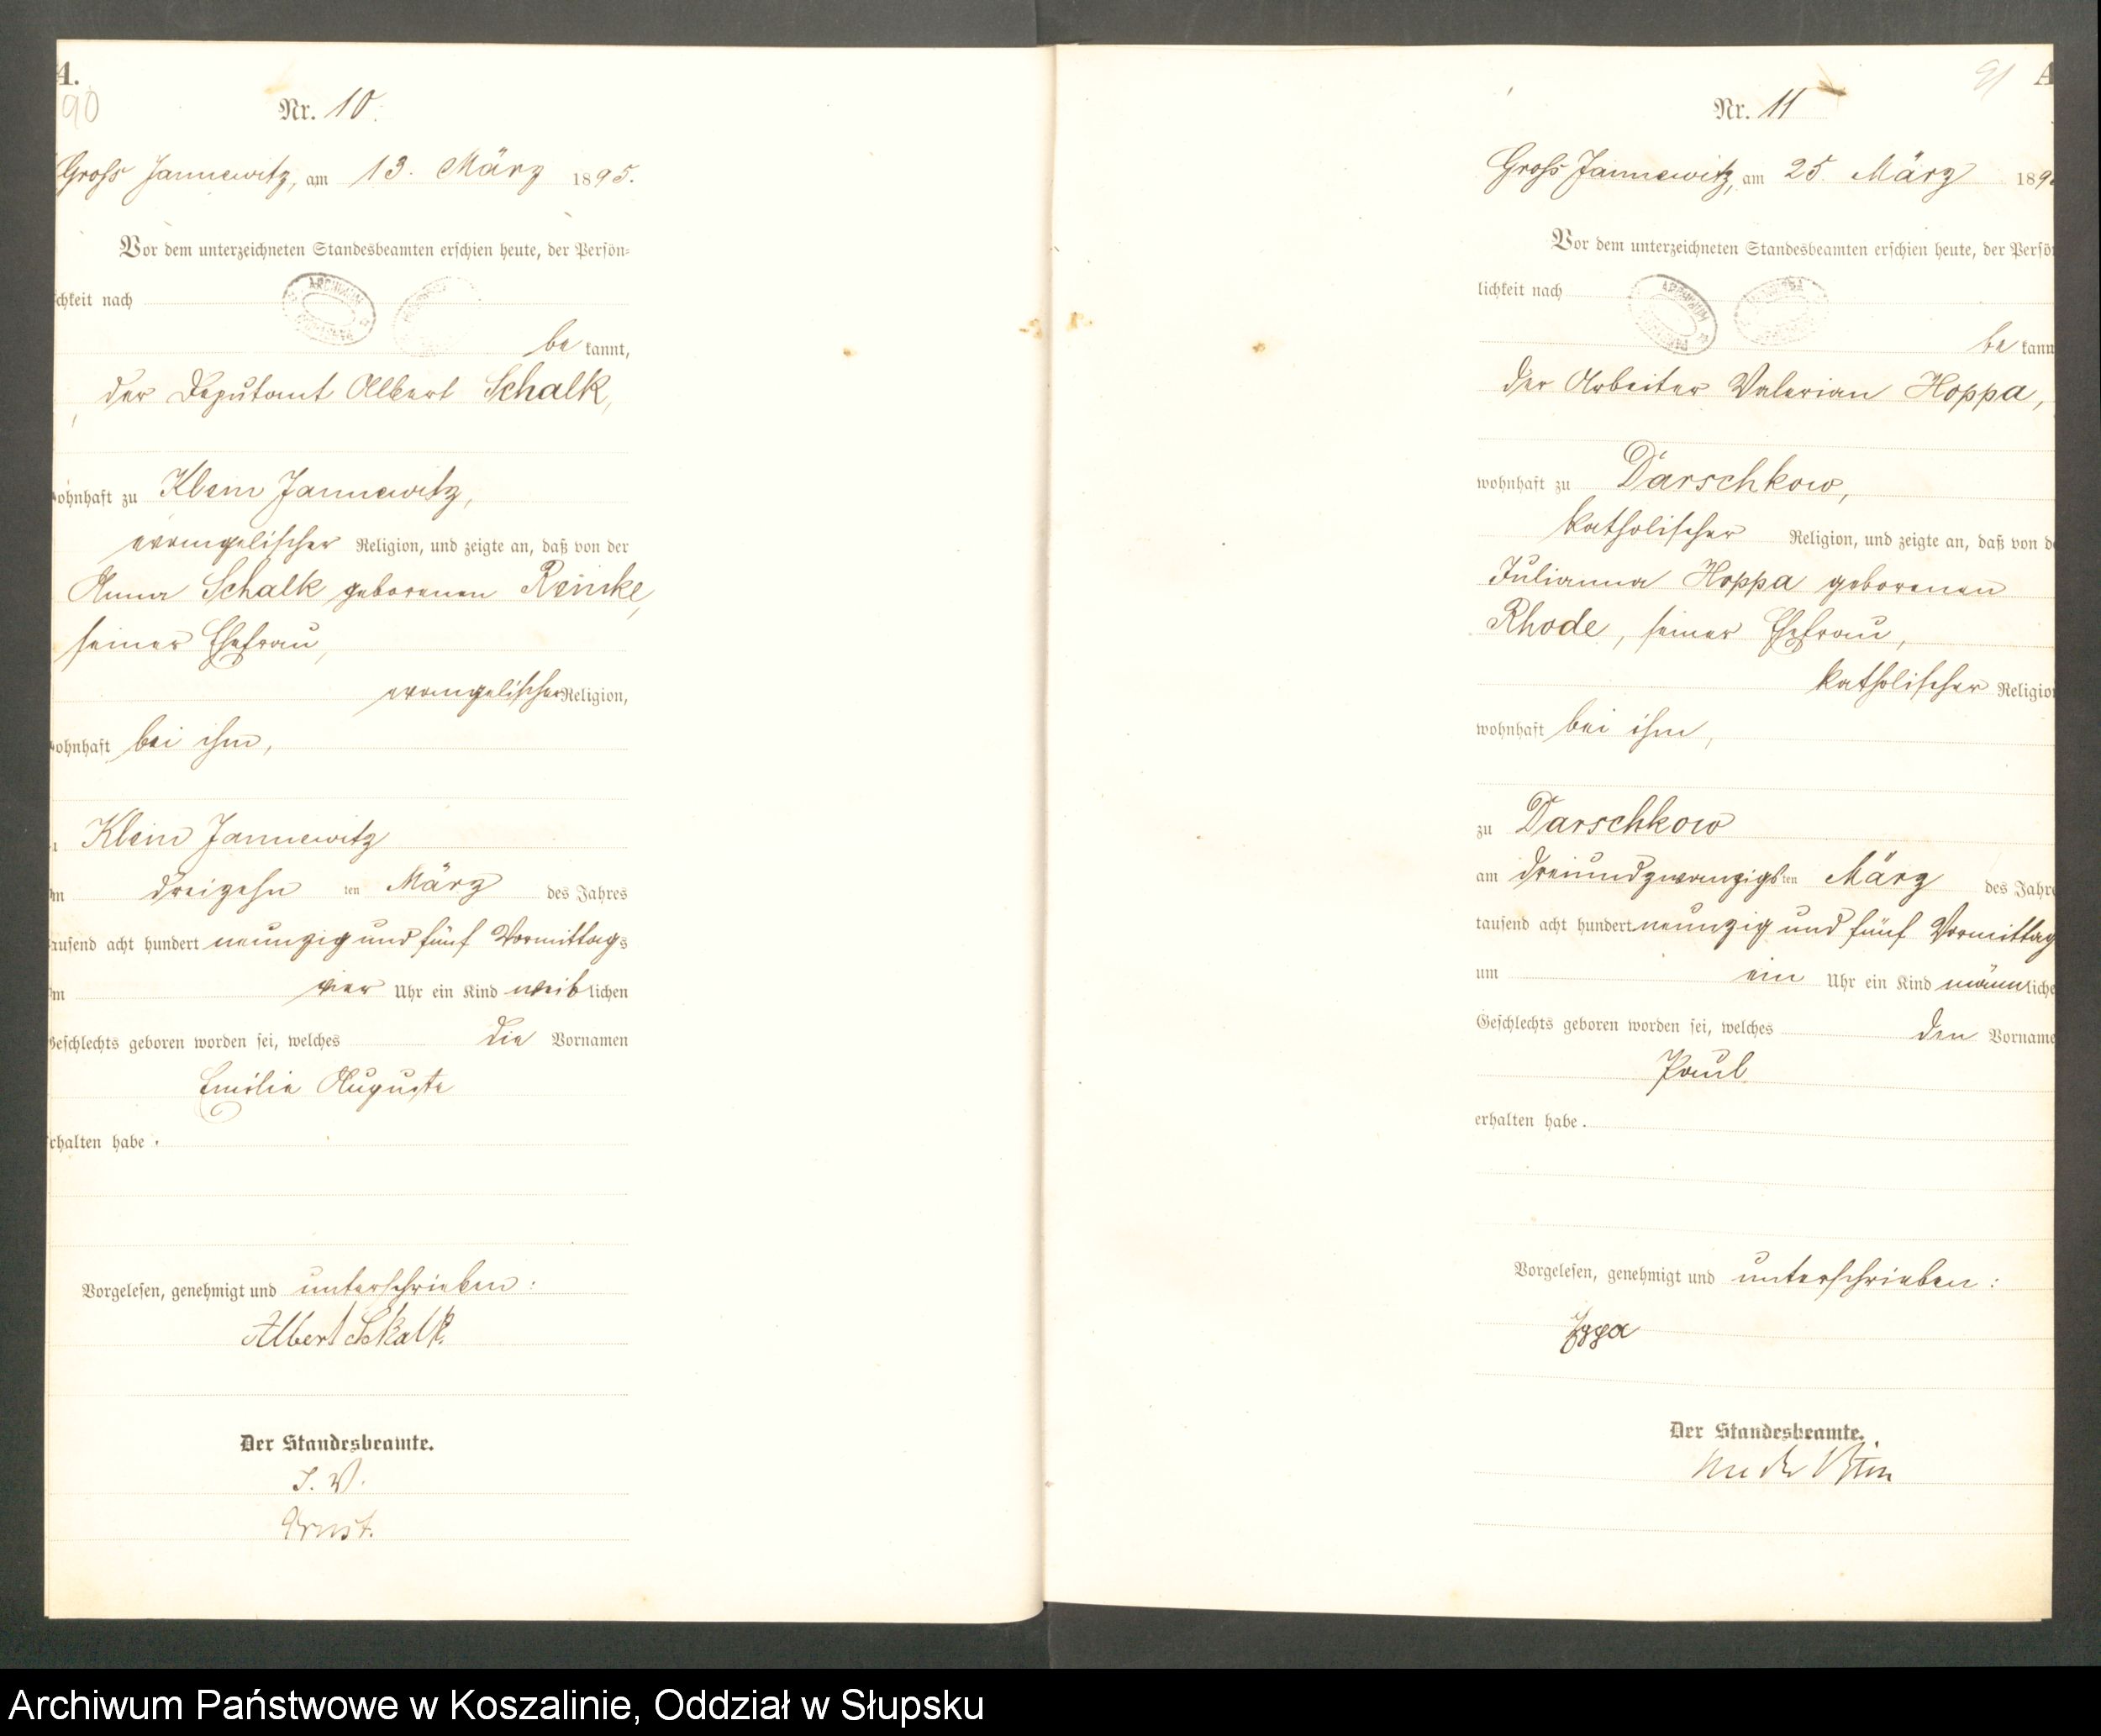 A.
90
Nr. 10.
Groß Jannewitz, am 13. März 1895.
Vor dem unterzeichneten Standesbeamten erschien heute, der Persön-
chkeit nach
be kannt,
der Deputant Albert Schalk,
ohnhaft zu Klein Jannewitz,
evangelischer Religion, und zeigte an, daß von der
Anna Schalk geborenen Reinke,
seiner Ehefrau,
evangelischer Religion,
ohnhaft bei ihm,
Klein Jannewitz
m dreizehn ten März des Jahres
ausend acht hundert neunzig und fünf Vormittags
m vier Uhr ein Kind weiblichen
Geschlechts geboren worden sei, welches die Vornamen
Emilie Auguste
rhalten habe.
Vorgelesen, genehmigt und unterschrieben:
Albert Schalk.
Der Standesbeamte.
I. V.
Ernst.
91 A
Nr. 11
Groß Jannewitz, am 25. März 189
Vor dem unterzeichneten Standesbeamten erschien heute, der Persö
lichkeit nach
be kann
der Arbeiter Valerian Hoppa,
wohnhaft zu Darschkow,
katholischer Religion, und zeigte an, daß von de
Julianna Hoppa geborenen
Rhode, seiner Ehefrau,
katholischer Religion
wohnhaft bei ihm,
zu Darschkow
am dreiundzwanzigsten März des Jahre
tausend acht hundert neunzig und fünf Vormittag
um ein Uhr ein Kind männliche
Geschlechts geboren worden sei, welches den Vorname
Paul
erhalten habe.
Vorgelesen, genehmigt und unterschrieben:
Der Standesbeamte.
Archiwum Państwowe w Koszalinie, Oddział w Słupsku